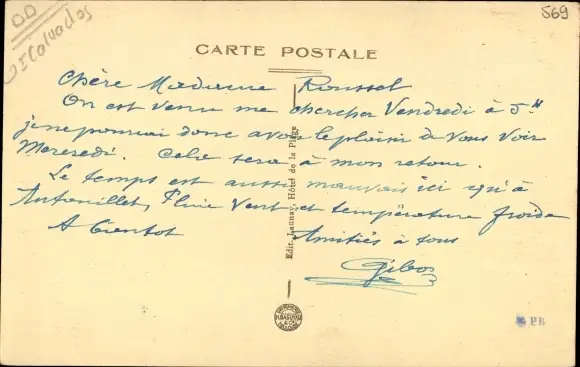 569
Calvados
CARTE POSTALE
Chère Madame Roussel
On est venu me chercher Vendredi à 5H
je ne pourrai donc avoir le plaisir de vous voir
Mercredi. Cela sera à mon retour.
Le temps est aussi mauvais ici qu'à
Pluie Vent et température froide
A bientot Amitiés à tous
Edit. Launay, Hôtel de la Plage
PB